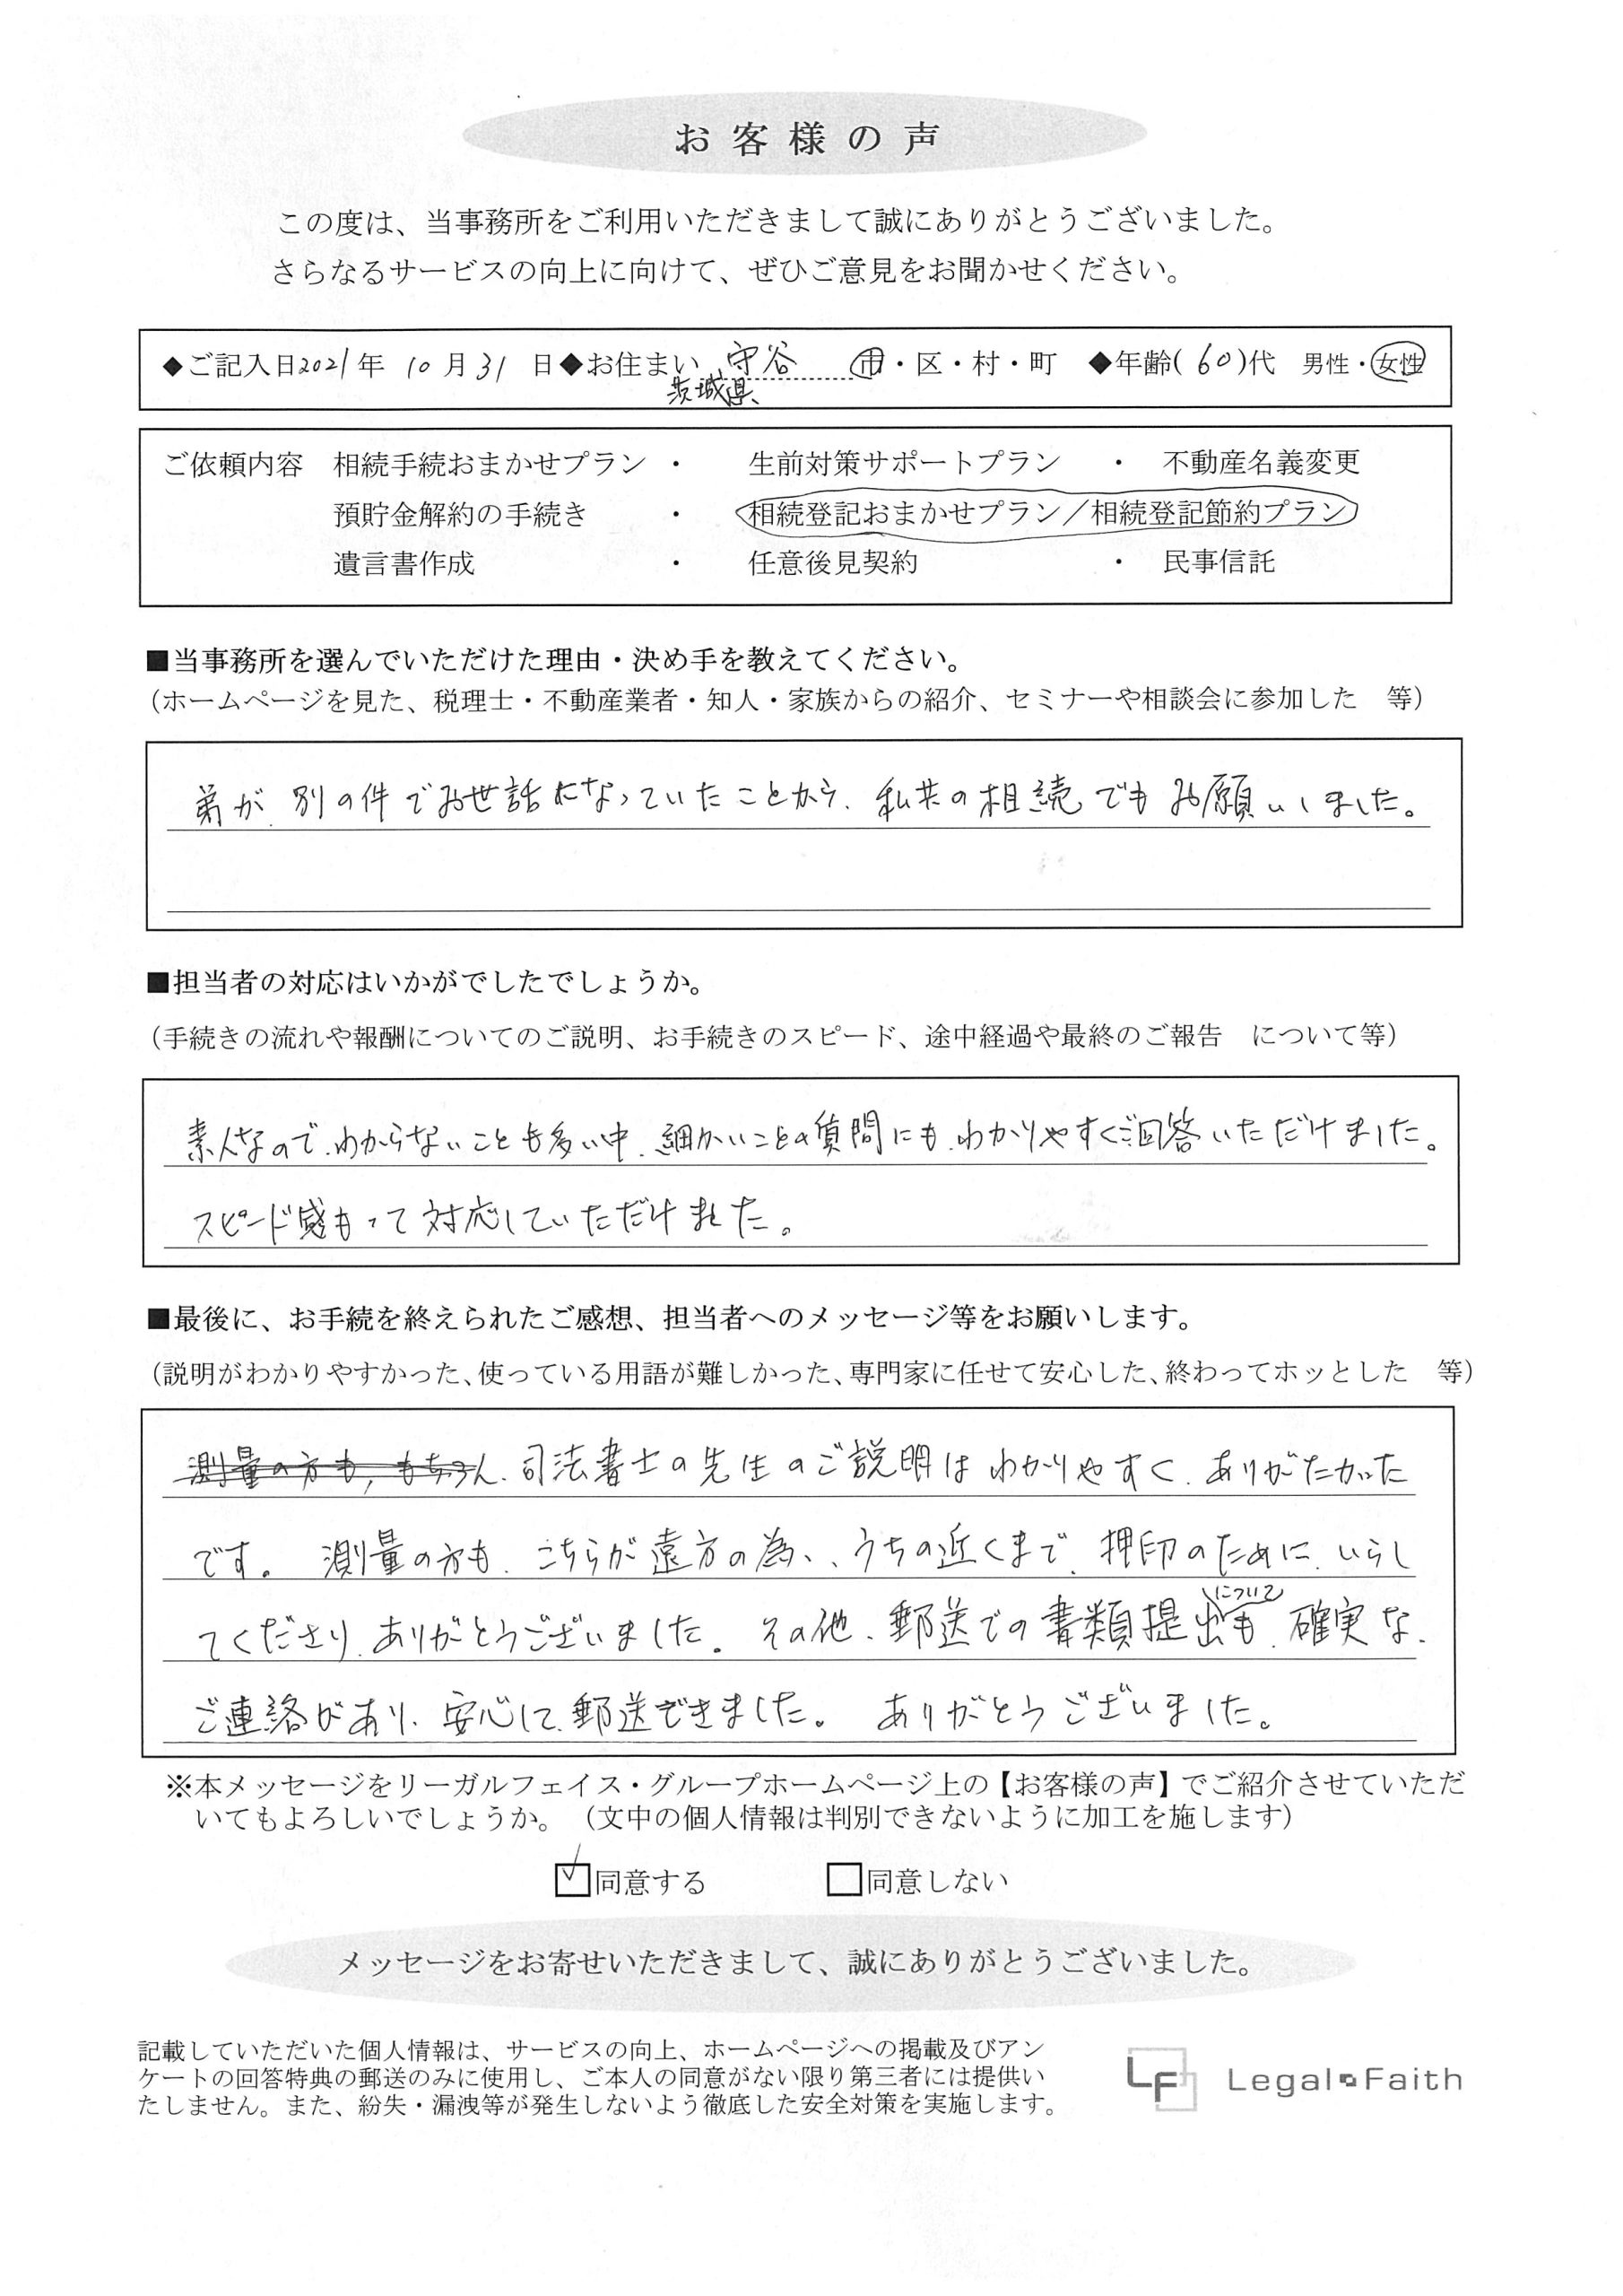 お客様の声
この度は、当事務所をご利用いただきまして誠にありがとうございました。
さらなるサービスの向上に向けて、ぜひご意見をお聞かせください。
◆ご記入日2021年 10月31 日◆お住まい 守谷 市・区・村・町 ◆年齢(60)代 男性・女性
茨城県
ご依頼内容 相続手続おまかせプラン ・ 生前対策サポートプラン ・ 不動産名義変更
預貯金解約の手続き ・ 相続登記おまかせプラン／相続登記節約プラン
遺言書作成 ・ 任意後見契約 ・ 民事信託
■当事務所を選んでいただけた理由・決め手を教えてください。
（ホームページを見た、税理士・不動産業者・知人・家族からの紹介、セミナーや相談会に参加した 等）
弟が、別の件でお世話になっていたことから、私共の相続でもお願いしました。
■担当者の対応はいかがでしたでしょうか。
（手続きの流れや報酬についてのご説明、お手続きのスピード、途中経過や最終のご報告 について等）
素人なので、わからないことも多い中、細かいことの質問にも、わかりやすくご回答いただけました。
スピード感もって対応していただけました。
■最後に、お手続を終えられたご感想、担当者へのメッセージ等をお願いします。
（説明がわかりやすかった、使っている用語が難しかった、専門家に任せて安心した、終わってホッとした 等）
測量の方も、もちろん、司法書士の先生のご説明はわかりやすく、ありがたかった
です。 測量の方も、こちらが遠方の為、、うちの近くまで、押印のために、いらし
てくださり、ありがとうございました。その他、郵送での書類提出についても、確実な、
ご連絡があり、安心して、郵送できました。 ありがとうございました。
※本メッセージをリーガルフェイス・グループホームページ上の【お客様の声】でご紹介させていただ
いてもよろしいでしょうか。（文中の個人情報は判別できないように加工を施します）
☑同意する □同意しない
メッセージをお寄せいただきまして、誠にありがとうございました。
記載していただいた個人情報は、サービスの向上、ホームページへの掲載及びアン
ケートの回答特典の郵送のみに使用し、ご本人の同意がない限り第三者には提供い
たしません。また、紛失・漏洩等が発生しないよう徹底した安全対策を実施します。
LF Legal Faith